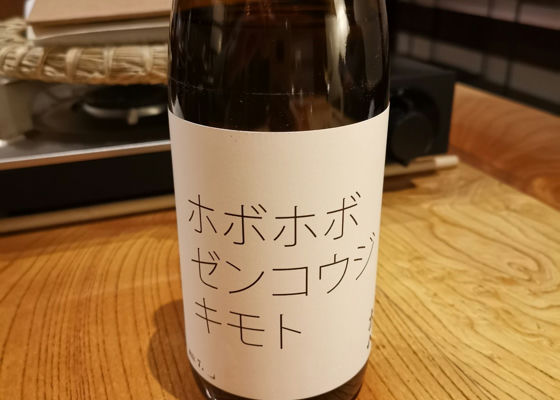 ホボホボ
ゼンコウジ
キモト